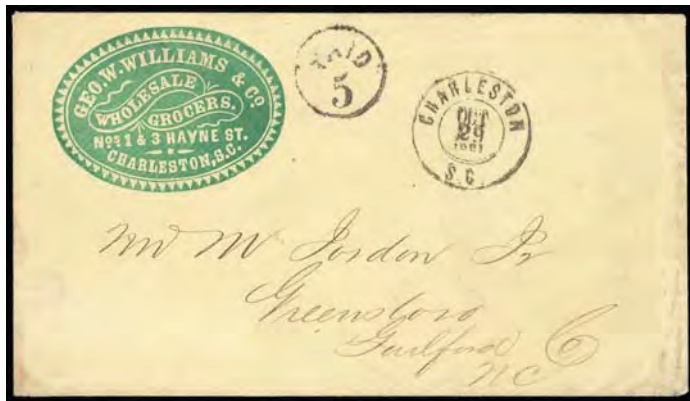 GEO. W. WILLIAMS & CO
WHOLESALE
GROCERS,
Nos 1 & 3 HAYNE ST.
CHARLESTON, S.C.
PAID
5
CHARLESTON
OCT
29
1861
S.C.
Jordon Jr
Greensboro
Guilford Co
NC